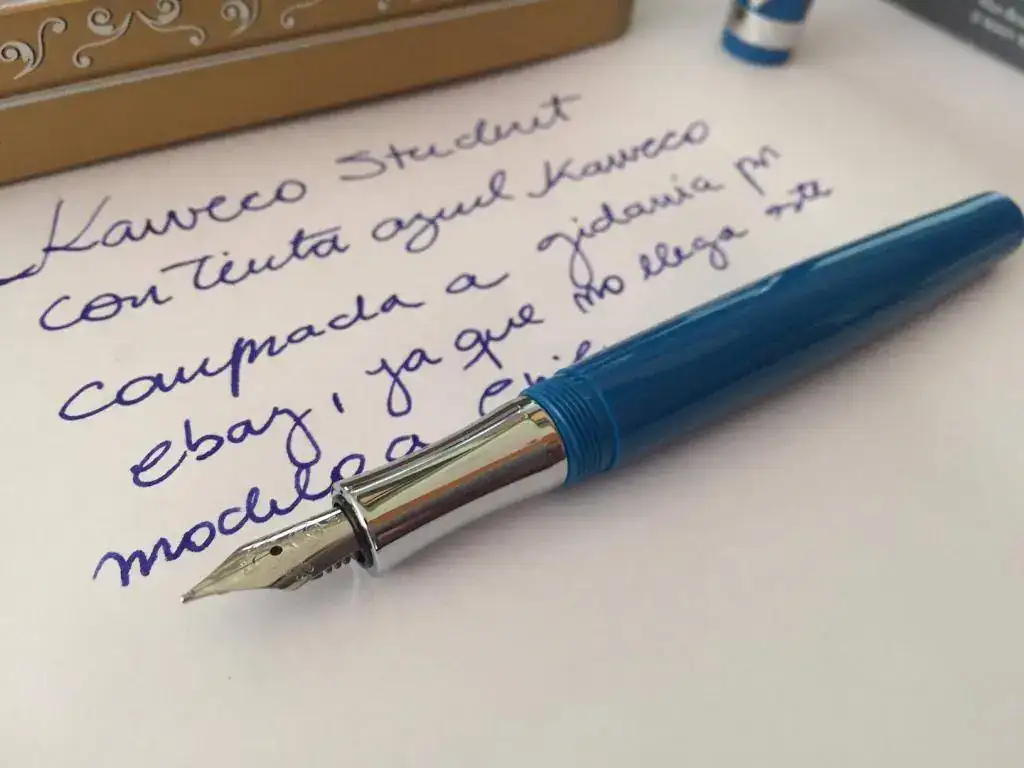 Kaweco Student
con tinta azul Kaweco
comprada a gidania por
ebay, ya que no llega este
modelo a